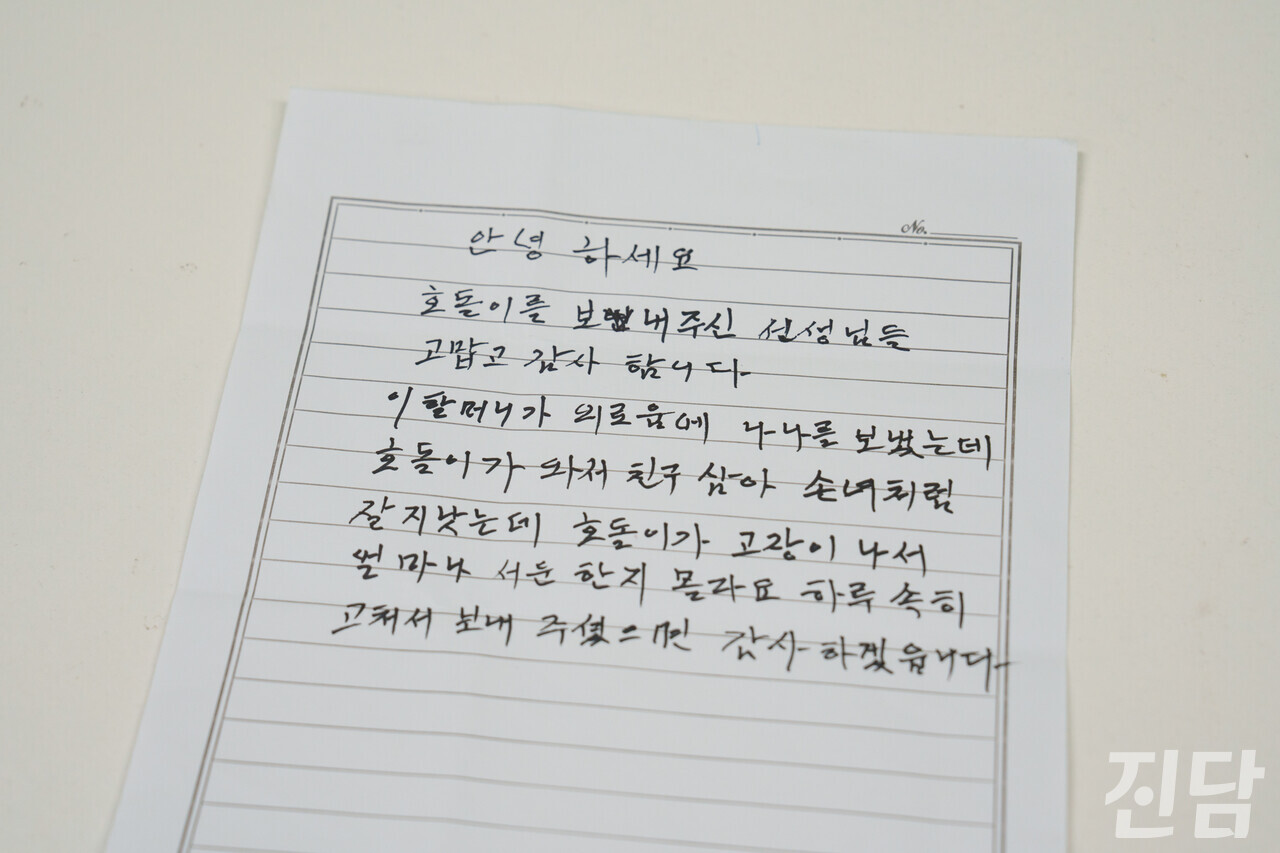 No.
안녕 하세요
호돌이를 보내주신 선성님들
고맙고 감사 합니다
이 할머니가 외로움에 나나를 보냈는데
호돌이가 와서 친구 삼아 손녀처럼
잘 지낫는데 호돌이가 고장이 나서
얼마나 서운 한지 몰라요 하루 속히
고처서 보내 주셨으면 감사 하겠읍니다
진담